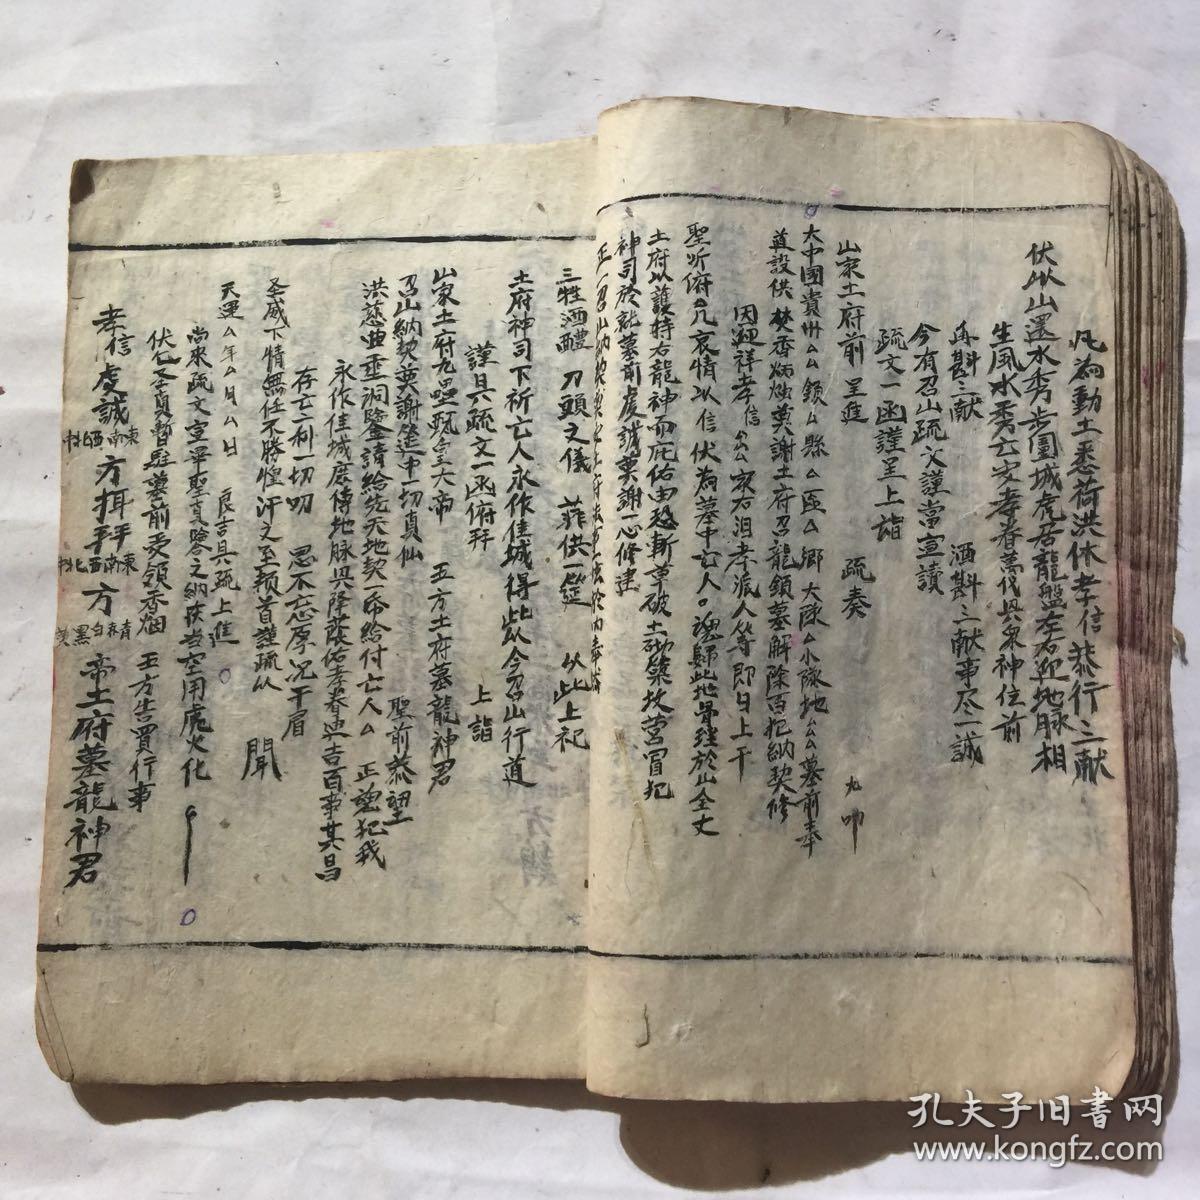 凡為動土悉荷洪休孝信恭行三献
伏以山還水秀步圍城虎居龍盤左右迎地脉相
生風水秀亡安孝眷萬代興泉神位前
再斟二献　酒斟三献事尽一誠
今有召山疏文謹當宣讀
疏文一函謹呈上詣
山家土府前呈進　疏奏　九叩
大中國貴州厶厶鎮厶縣厶區厶鄉大隊厶小隊地厶厶墓前奉
道設供焚香炳燭奠謝土府召龍鎮墓解除百犯納契修
因迎祥孝信厶厶哀右泪孝派人等即日上干
聖听俯凡哀情以信伏為墓中亡人魂歸此地骨埋於山全丈
土府以護持右龍神而庇佑由恐斬草破土砌築坟營冒犯
神司於就墓前虔誠奠謝一心修建
正一召山納契
三牲酒醴　刀頭之儀　菲供一筵　以此上祀
土府神司下祈亡人永作佳城得此以今召山行道
謹具疏文一函俯拜　上詣
山家土府九壘皇大帝　五方土府墓龍神君
召山納契奠謝筵中一切真仙　聖前恭望
洪慈曲垂洞鑒請給先天地契一帋給付亡人厶　正望犯我
永作佳城庶俾地脉興隆蔭佑孝眷迪吉百事其昌
存亡二利一切叨　恩不忘原况干冒
圣威下情無任不勝惶汗之至頓首謹疏以　聞
天運厶年厶月厶日　良吉具疏上進
尚來疏文宣畢聖真啥之納疾當空用虎火化
伏乞圣真暫駐墓前受領香烟　五方告買行事
孝信虔誠　東南西北中　方揖拜　東南西北中　方　青赤白黑黄　帝土府墓龍神君
孔夫子旧書网
www.kongfz.com